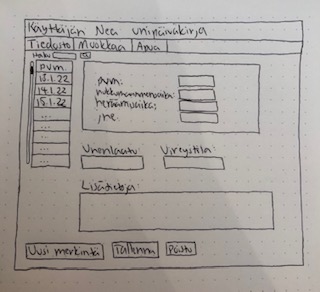 Käyttäjän Nea unipäiväkirja
Tiedosto Muokkaa Apua
Haku
pvm.
13.1.22
14.1.22
15.1.22
...
...
...
...
pvm:
nukkumaanmenoaika:
heräämisaika:
jne.
Unenlaatu:
Vireystila:
Lisätietoja:
Uusi merkintä Tallenna Poistu